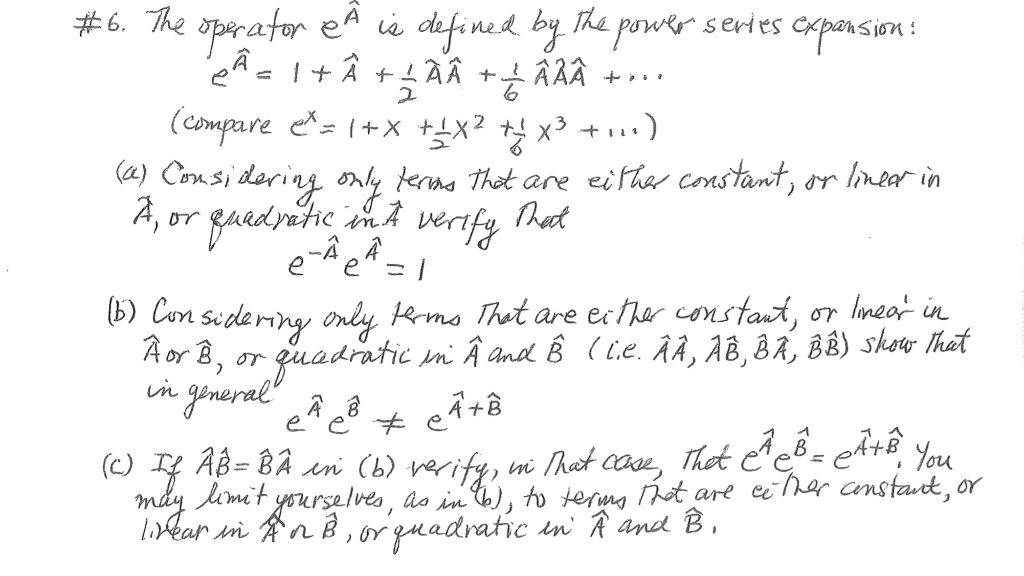 #6. The operator e^Â is defined by the power series expansion:
e^Â = 1 + Â + 1/2 ÂÂ + 1/6 ÂÂÂ + ...
(compare e^x = 1 + x + 1/2 x² + 1/6 x³ + ...)
(a) Considering only terms that are either constant, or linear in
Â, or quadratic in Â verify that
e^-Â e^Â = 1
(b) Considering only terms that are either constant, or linear in
Â or B̂, or quadratic in Â and B̂ (i.e. ÂÂ, ÂB̂, B̂Â, B̂B̂) show that
in general
e^Â e^B̂ ≠ e^Â+B̂
(c) If ÂB̂ = B̂Â in (b) verify, in that case, that e^Â e^B̂ = e^Â+B̂. You
may limit yourselves, as in (b), to terms that are either constant, or
linear in Â or B̂, or quadratic in Â and B̂.